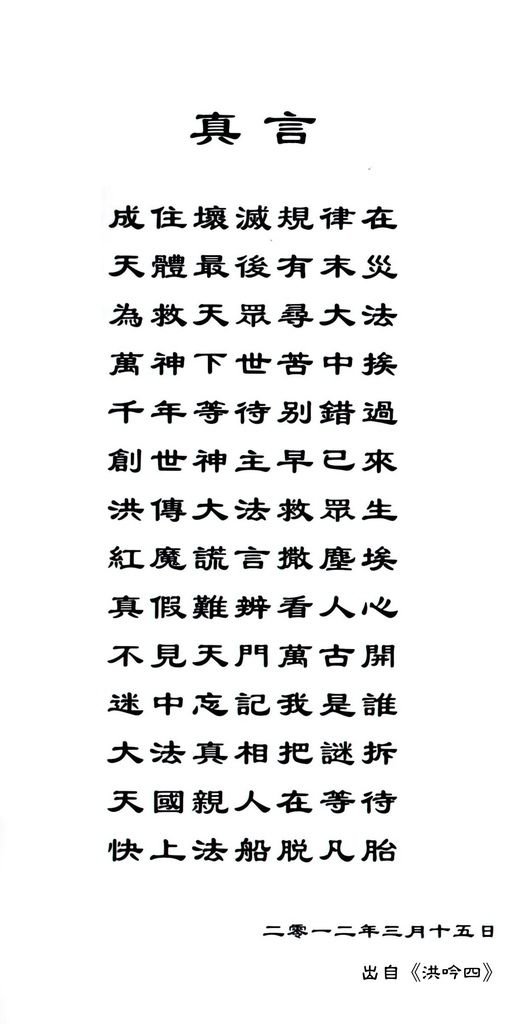 真言
成住壞滅規律在
天體最後有末災
為救天眾尋大法
萬神下世苦中挨
千年等待別錯過
創世神主早已來
洪傳大法救眾生
紅魔謊言撒塵埃
真假難辨看人心
不見天門萬古開
迷中忘記我是誰
大法真相把謎拆
天國親人在等待
快上法船脫凡胎
二零一二年三月十五日
出自《洪吟四》